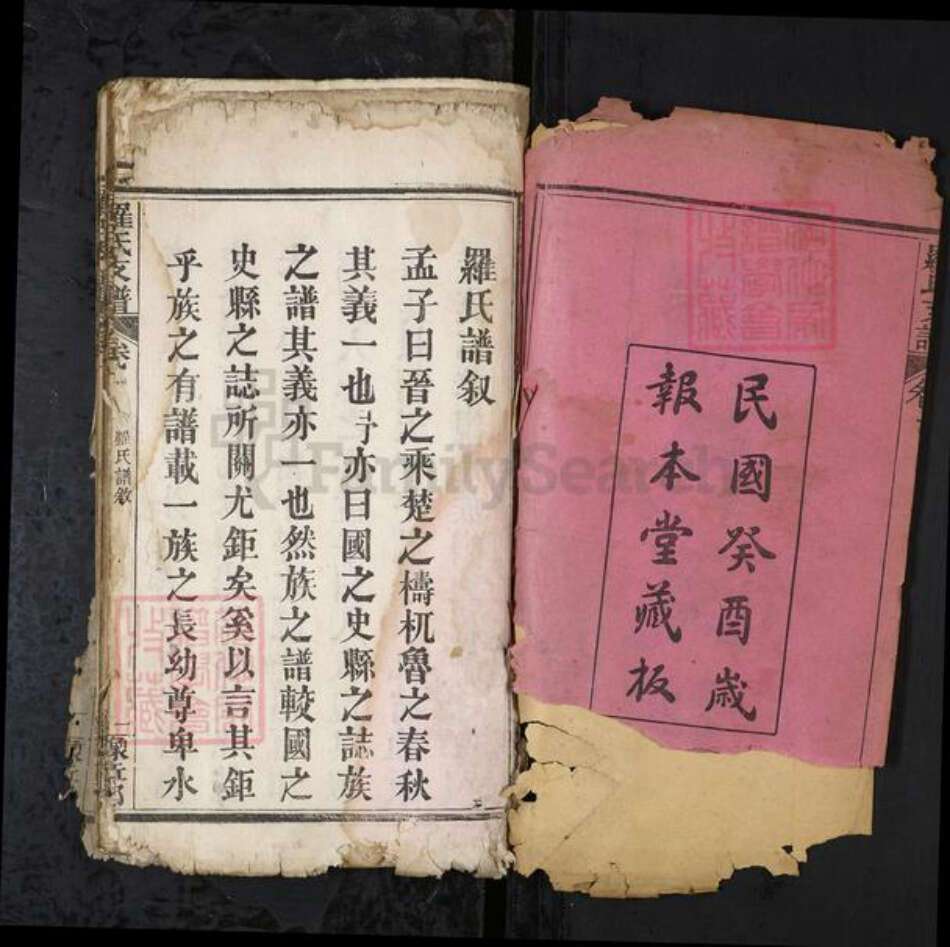 民國癸酉歲
報本堂藏板
羅氏譜叙
孟子曰晉之乘楚之檮杌魯之春秋
其義一也予亦曰國之史縣之誌族
之譜其義亦一也然族之譜較國之
史縣之誌所關尤鉅矣奚以言其鉅
乎族之有譜載一族之長幼尊卑水
羅氏支譜
卷一
羅氏譜敘
FamilySearch